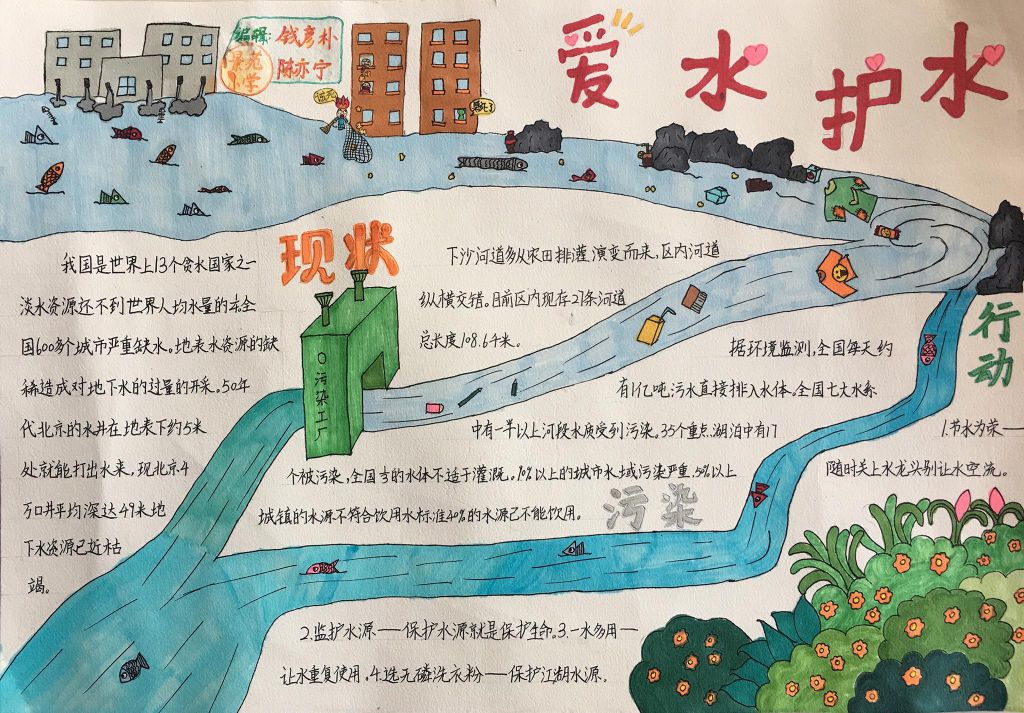 爱水护水
编辑：钱彦朴
陈亦宁
现状
我国是世界上13个贫水国家之一
淡水资源还不到世界人均水量的 全
国600多个城市严重缺水。地表水资源的缺
稀造成对地下水的过量的开采。50年
代北京的水井在地表下约5米
处就能打出水来，现北京4
万口井平均深达49米地
下水资源已近枯
竭。
下沙河道多从农田排灌演变而来，区内河道
纵横交错。目前区内现存21条河道
总长度108.64米。
污染工厂
据环境监测，全国每天约
有1亿吨污水直接排入水体。全国七大水系
中有一半以上河段水质受到污染。35个重点湖泊中有17
个被污染，全国 的水体不适于灌溉。90%以上的城市水域污染严重，50%以上
城镇的水源不符合饮用水标准40%的水源已不能饮用。
污染
行动
1.节水为荣——
随时关上水龙头别让水空流。
2.监护水源——保护水源就是保护生命。3.一水多用——
让水重复使用。4.选无磷洗衣粉——保护江湖水源。